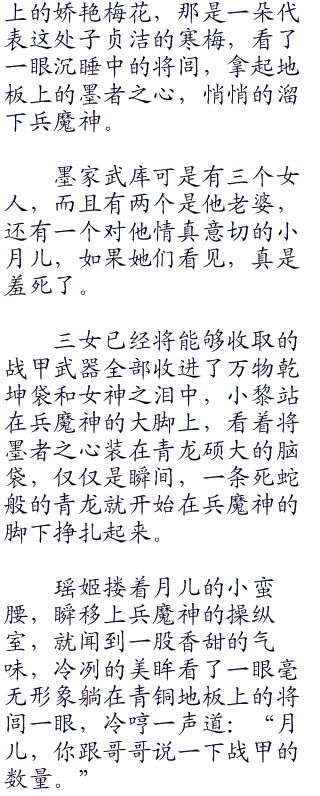 上的娇艳梅花，那是一朵代
表这处子贞洁的寒梅，看了
一眼沉睡中的将闾，拿起地
板上的墨者之心，悄悄的溜
下兵魔神。
墨家武库可是有三个女
人，而且有两个是他老婆，
还有一个对他情真意切的小
月儿，如果她们看见，真是
羞死了。
三女已经将能够收取的
战甲武器全部收进了万物乾
坤袋和女神之泪中，小黎站
在兵魔神的大脚上，看着将
墨者之心装在青龙硕大的脑
袋，仅仅是瞬间，一条死蛇
般的青龙就开始在兵魔神的
脚下挣扎起来。
瑶姬搂着月儿的小蛮
腰，瞬移上兵魔神的操纵
室，就闻到一股香甜的气
味，冷冽的美眸看了一眼毫
无形象躺在青铜地板上的将
闾一眼，冷哼一声道：“月
儿，你跟哥哥说一下战甲的
数量。”